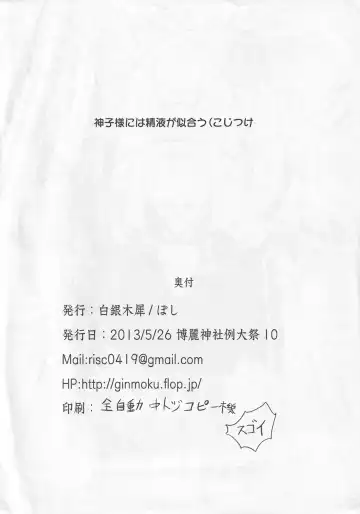 神子様には精液が似合う(こじつけ
奥付
発行：白銀木犀/ぽし
発行日：2013/5/26 博麗神社例大祭10
Mail:risc0419@gmail.com
HP:http://ginmoku.flop.jp/
印刷：全自動中トヅコピー機
スゴイ